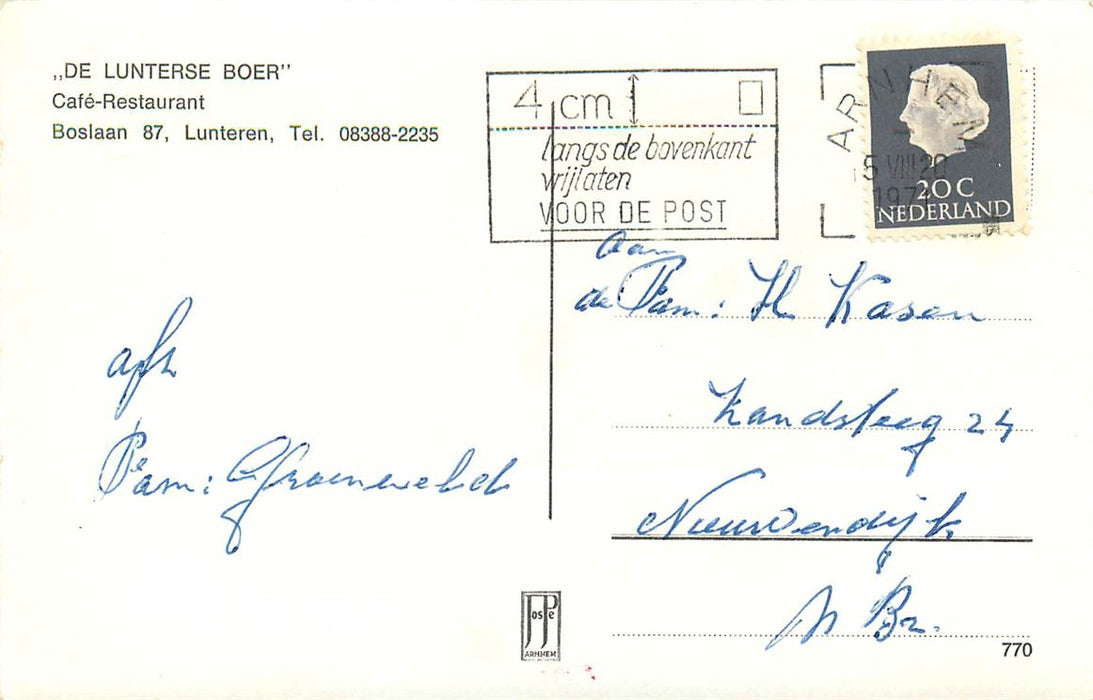 „DE LUNTERSE BOER”
Café-Restaurant
Boslaan 87, Lunteren, Tel. 08388-2235
4 cm
langs de bovenkant
vrijlaten
VOOR DE POST
ARNHEM
5 VIII 20
197
20 C
NEDERLAND
Aan
de Fam: H Kasen
Zandsteeg 24
Nieuwendijk
N Br.
afz
Fam: Groeneveld
JosPé
ARNHEM
770